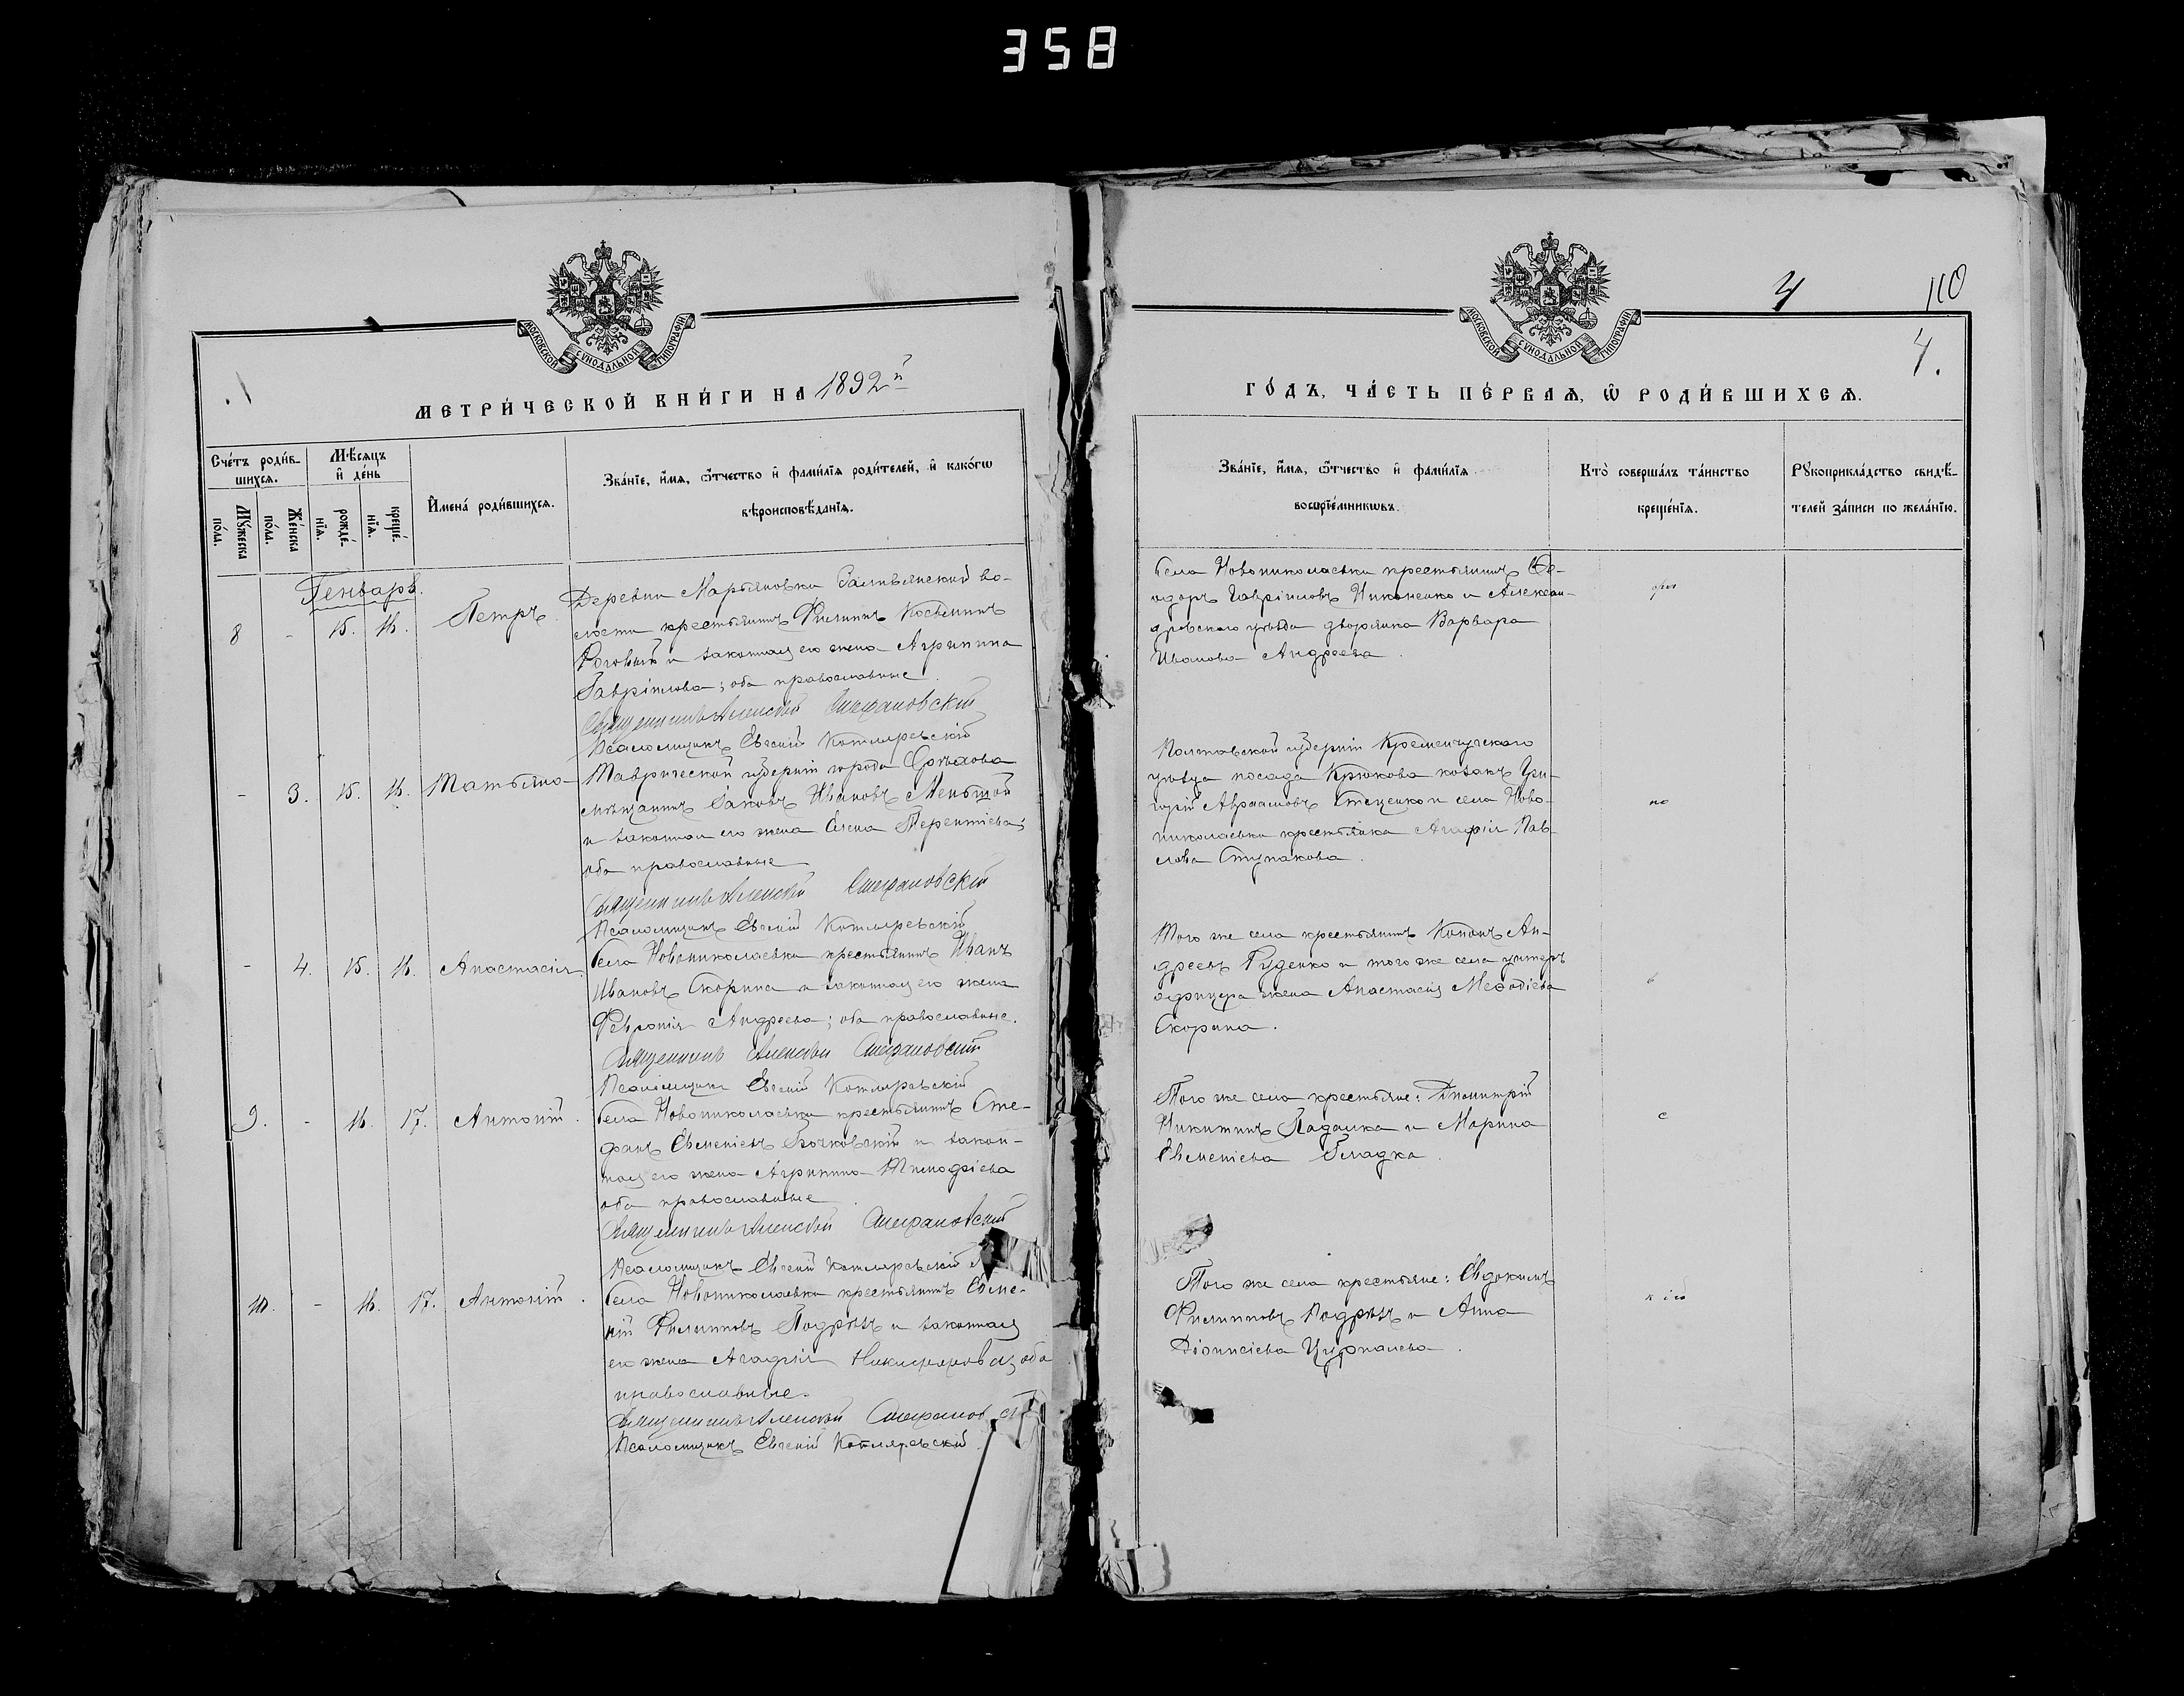 358
МОСКОВСКОЙ СУНОДАЛЬНОЙ ТИПОГРАФІИ
МЕТРИ́ЧЕСКОЙ КНИ́ГИ НА 1892й
Сче́тъ роди́в-
шихся.
Мѣ́сяцъ
и҆ де́нь
Мꙋ́жеска
по́ла.
Же́нска
по́ла.
рожде́-
нїя.
креще́-
нїя.
И҆мена́ роди́вшихся.
Зва́нїе, и҆́мя, ѻ҆́тчество и҆ фами́лїя роди́телей, и҆ како́гѡ
вѣроисповѣ́данїя.
Генварь.
8 - 15. 16. Петръ
Деревни Марьяновки во-
лости крестьянинъ Филиппъ Косьминъ
Роговый и законная его жена Агрипина
Гавріилова; оба православные.
Священникъ Алексѣй Стефановскій
Псаломщикъ Евгеній Котляревскій
- 3. 15. 16. Татьяна
Таврической губерніи города Орѣхова
мѣщанинъ Іаковъ Ивановъ Меньшой
и законная его жена Елена Терентіева;
оба православные
Священникъ Алексѣй Стефановскій
Псаломщикъ Евгеній Котляревскій
- 4. 15. 16. Анастасія.
Села Новониколаевки крестьянинъ Иванъ
Ивановъ Скорина и законная его жена
Февронія Андреева; оба православные.
Священникъ Алексѣй Стефановскій
Псаломщикъ Евгеній Котляревскій
9. - 16. 17. Антоній.
Села Новониколаевки крестьянинъ Сте-
фанъ Евменіевъ Бочковскій и закон-
ная его жена Агрипина Тимофіева
оба православные
Священникъ Алексѣй Стефановскій
Псаломщикъ Евгеній Котляревскій
10. - 16. 17. Антоній.
Села Новониколаевки крестьянинъ Евме-
ній Филипповъ Подрѣзъ и законная
его жена Агафія Никифорова; оба
православные.
Священникъ Алексѣй Стефанов
Псаломщикъ Евгеній Котляревскій.
4 110
МОСКОВСКОЙ СУНОДАЛЬНОЙ ТИПОГРАФІИ
4.
ГО́ДЪ, ЧА́СТЬ ПЕ́РВАѦ, Ѽ РОДИ́ВШИХСѦ.
Зва́нїе, и҆́мя, ѻ҆́тчество и҆ фами́лїя
воспрїе́мникѡвъ.
Кто̀ соверша́лъ та́инство
креще́нїя.
Рꙋкоприкла́дство свидѣ́-
телей за́писи по жела́нїю.
Села Новониколаевки крестьянинъ Ѳе-
одоръ Гавріиловъ Никоненко и Алексан-
дровскаго уѣзда дворянка Варвара
Иванова Андреева.
Полтавской губерніи Кременчугскаго
уѣзда посада Крюкова козакъ Гри-
горій Авраамовъ Стеценко и села Ново-
николаевки крестьянка Агафія Пав-
лова Ступакова.
Того же села крестьянинъ Кононъ Ан-
дреевъ Руденко и того же села унтеръ
офицера жена Анастасія Меѳодіева
Скорина.
Того же села крестьяне: Димитрій
Никитинъ Падалка и Марина
Евменіева Гладка.
Того же села крестьяне: Евдокимъ
Филипповъ Подрѣзъ и Анна
Діонисіева